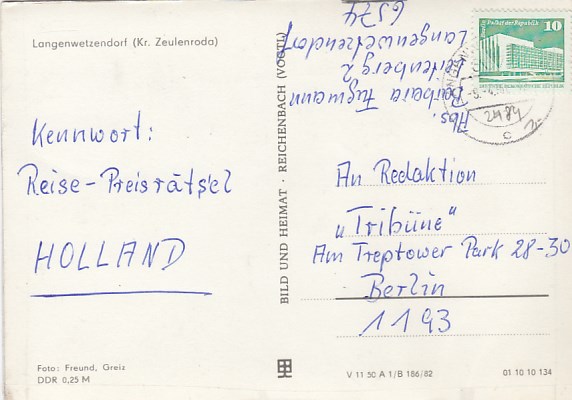 Langenwetzendorf (Kr. Zeulenroda)
Kennwort:
Reise-Preisrätsel
HOLLAND
Foto: Freund, Greiz
DDR 0,25 M
BILD UND HEIMAT · REICHENBACH (VOGTL)
Abs.
Barbara
2
Langenwetzendorf
6574
10
An Redaktion
„Tribüne“
Am Treptower Park 28-30
Berlin
1193
V 11 50 A 1/B 186/82
01 10 10 134